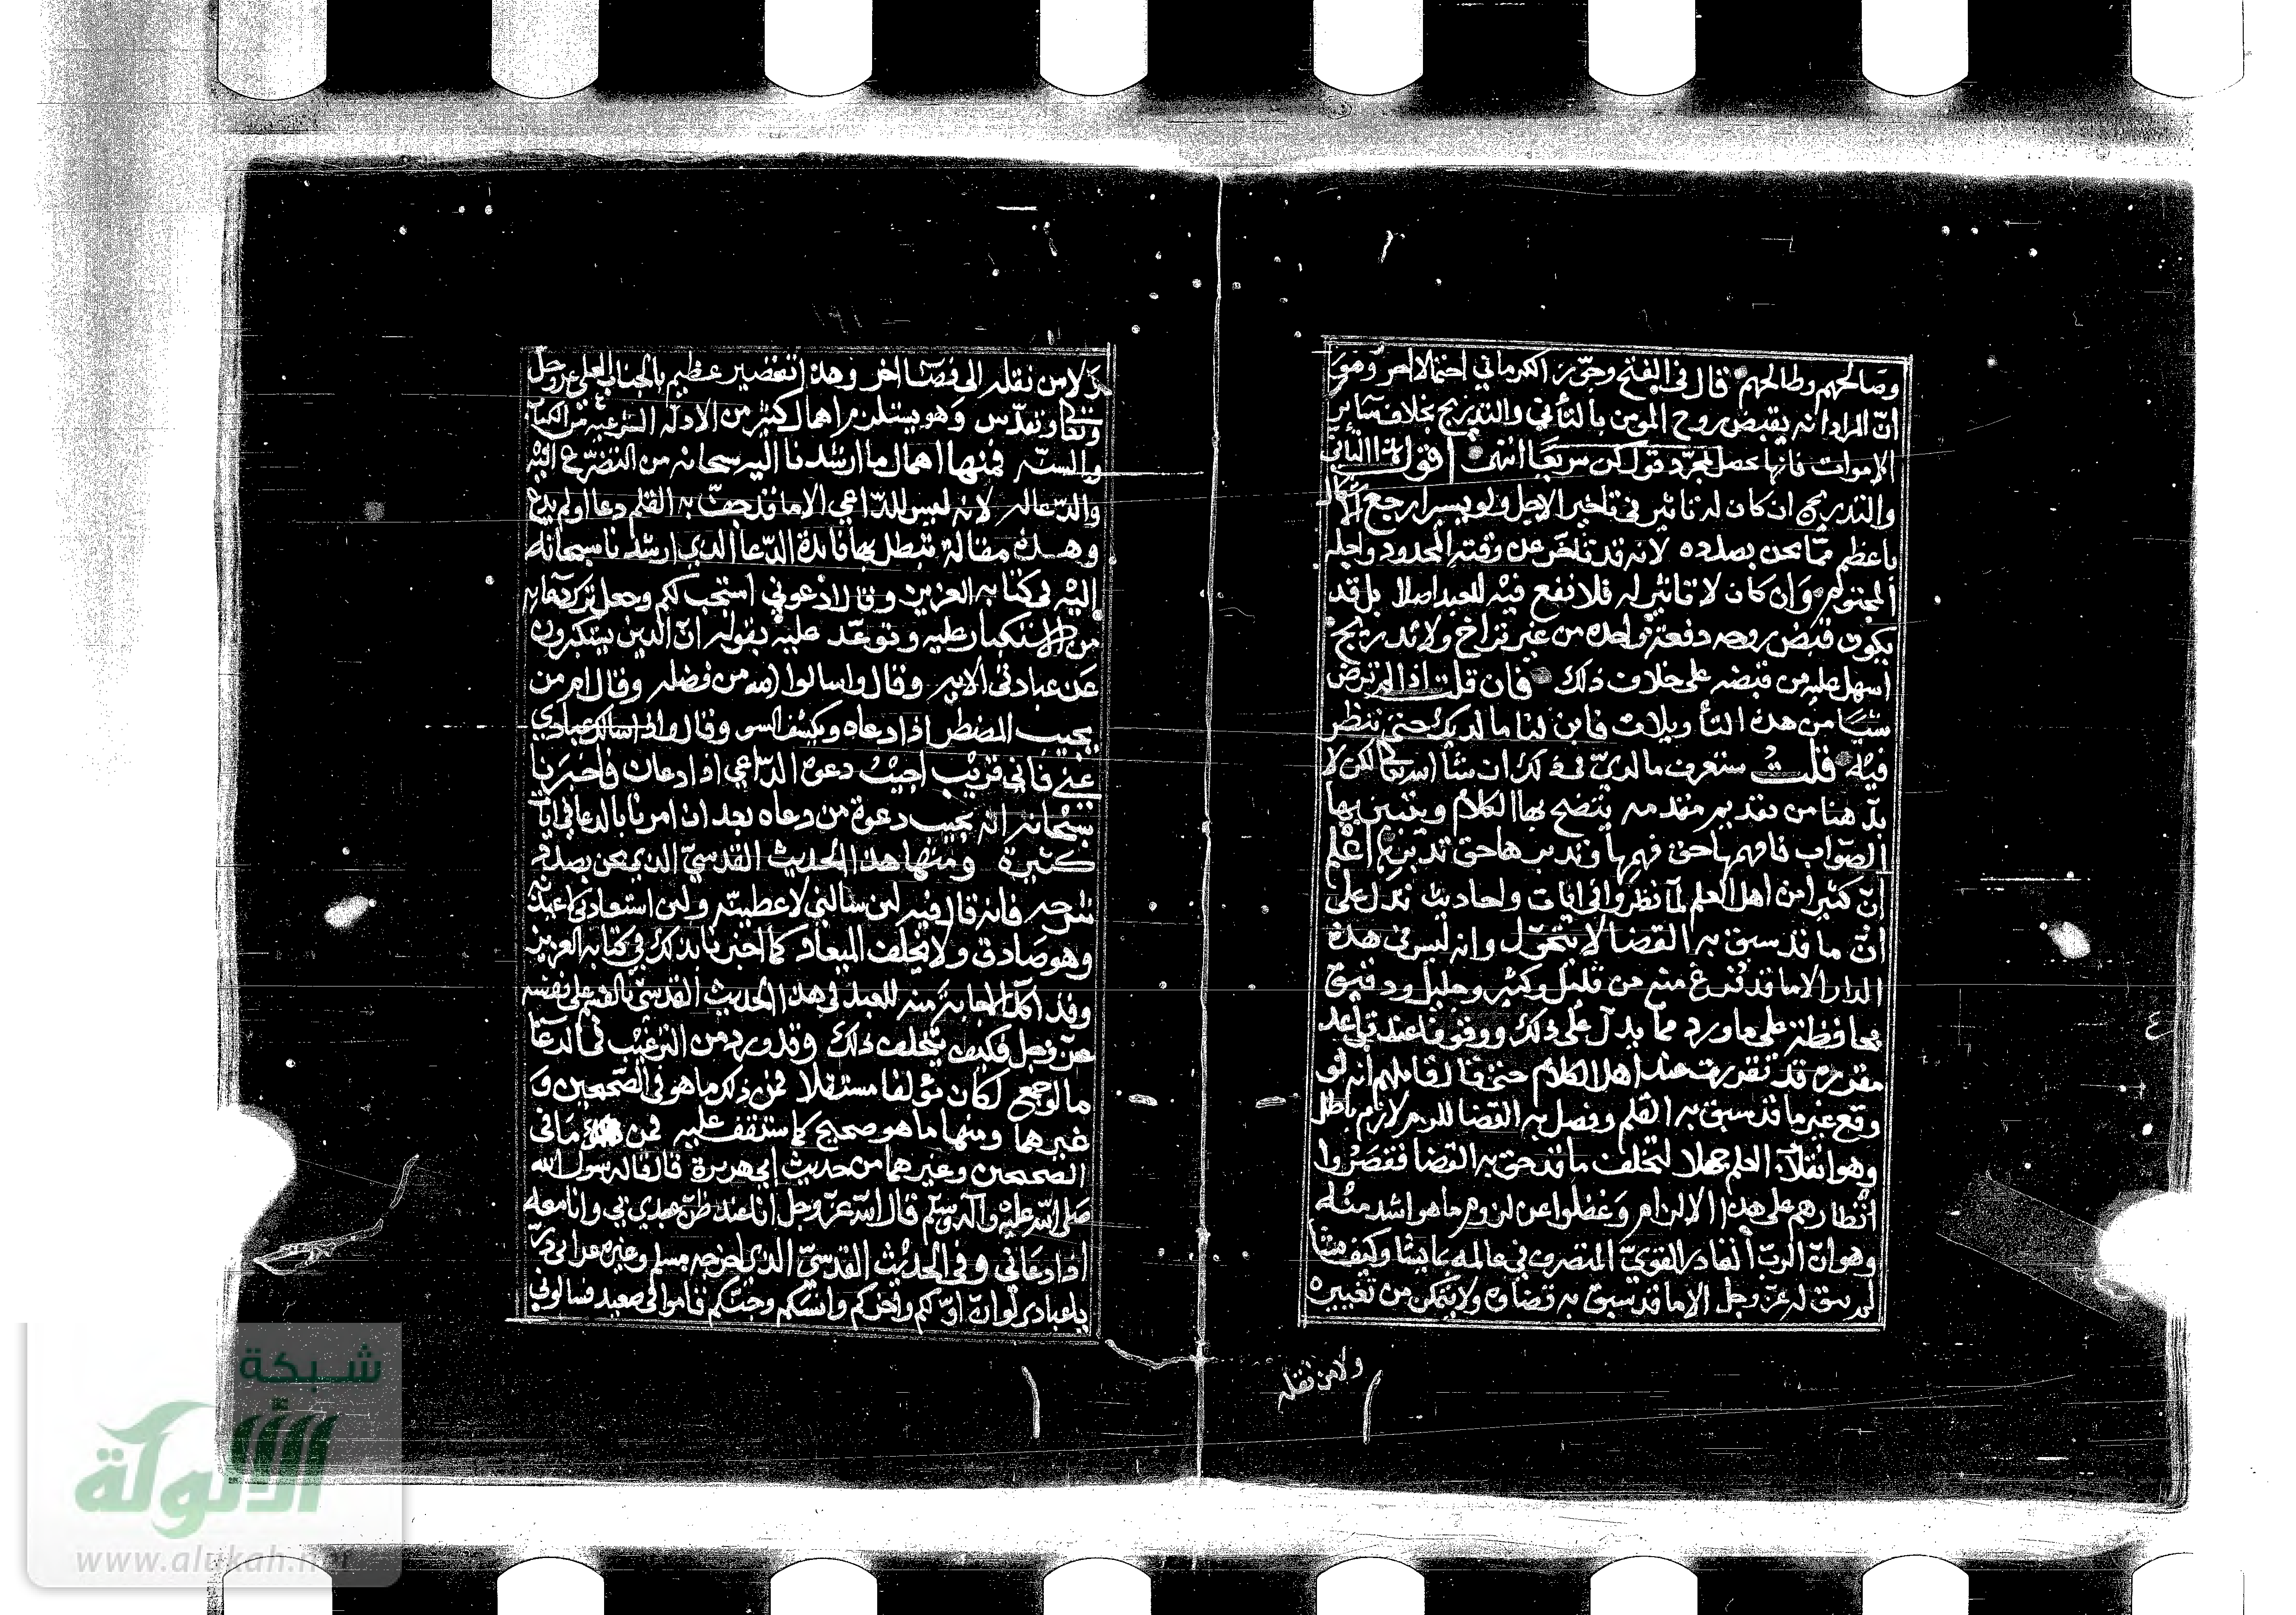 وصالحهم وطالحهم قال في الفتح وجوّز الكرماني احتمالا اخر وهو
انّ المراد انه يقبض روح المومن بالتأني والتدريج بخلاف سائر
الاموات فانها تحصل بمجرّد قول كن سريعا انتهى اقول هذا التاني
والتدريج ان كان له تاثير في تاخير الاجل ولو يسيرا رجع الاشكال
باعظم ممّا نحن بصدده لانه قد تاخر عن وقته المحدود واجله
المحتوم وَان كان لا تاثير له فلا نفع فيه للعبد اصلا بل قد
يكون قبض روحه دفعة واحدة من غير تراخ ولا تدريج
اسهل عليه من قبضه على خلاف ذلك فان قلت اذا لم ترض
شيئا من هذه التأويلات فابن لنا ما لديك حتى ننظر
فيه قلتُ ستعرف ما لديّ في ذلك ان شا الله تعالى لكن لا
بدّ هنا من تقديم مقدمه يتضح بها الكلام ويتبين بها
الصّواب فافهمها حق فهمها وتدبرها حق تدبرها اعلم
انّ كثيرا من اهل العلم لمّا نظروا في ايات واحاديث تدل على
انّ ما قد سبق به القضا لا يتحوّل وانه ليس في هذه
الدار الا ما قد فرغ منه من قليل وكثير وجليل ودقيق
محافظة على ما ورد مما يدلّ على ذلك ووقوفا عند قواعد
مقرره قد تقررت عند اهل الكلام حتى قال قايلهم انه لو
وقع غير ما قد سبق به القلم وفصل به القضا للزم لازم باطل
وهو انقلاب العلم جهلا لتخلف ما قد حق به القضا فقصَرُوا
انظارهم على هذا الالزام وَغفلوا عن لزوم ما هو اشد منه
وهو انّ الربّ القادر القويّ المتصرف في عالمه بما يشا وكيف يشا
لم يبق له عزّ وجل الا ما قد سبق به قضاوه ولا يتمكن من تغييره
ولا من نقله
وَلا من نقله الى قضا اخر وهذا تقصير عظيم بالجناب العلي عز وجل
وتعا وتقدّس وَهو يستلزم اهمال كثير من الادلة الشرعية من الكتاب
والسنّه فمنها اهمال ما ارشدنا اليه سبحانه من التضرّع اليه
والدّعا له لانه ليس للدّاعي الا ما قد جفّ به القلم دعا او لم يدع
وهـذه مقالة تبطل بها فائدة الدّعا الذي ارشدنا سبحانه
اليه في كتابه العزيز وقال ادعوني استجب لكم وجعل ترك دعائه
من الاستكبار عليه وتوعّد عليه بقوله انّ الذين يستكبرون
عَن عبادتي الايه وقال واسالوا الله من فضله وقال ام من
يجيب المضطر اذا دعاه ويكشف السو وقال واذا سالك عبادي
عني فاني قريب اجيب دعوة الدّاعي اذا دعان فاخبرنا
سبحانه انه يجيب دعوة من دعاه بعد ان امرنا بالدعا في ايات
كثيرة ومنها هذا الحديث القدسيّ الذي نحن بصدد
شرحه فانه قال فيه لين سالني لاعطينّه ولين استعاذني لاعيذنّه
وهو صَادق ولا يخلف الميعاد كما اخبرنا بذلك في كتابه العزيز
وقد اكّد الاجابة منه للعبد في هذا الحديث القدسيّ بالقسم على نفسه
عزّ وجل فكيف يتخلف ذلك وقد ورد من الترغيب في الدعا
ما لو جمع لكان مؤلفا مستقلا فمن ذلك ما هو في الصّحيحين وَ
غيرهما ومنها ما هو صحيح كما ستقف عليه فمن مَا في
الصحيحين وغيرهما من حديث ابي هريرة قال قال رسول الله
صَلى الله عليه وآله وسلم قال الله عزّ وجل انا عند ظنّ عبدي بي وانا معه
اذا دعَاني وفي الحديث القدسيّ الذي اخرجه مسلم وغيره عن ابي ذرّ
يا عبادي لو انّ اوّلكم واخركم وانسكم وجنّكم قاموا في صعيد فسالوني
شبكة
الألولة
www.alukah.net